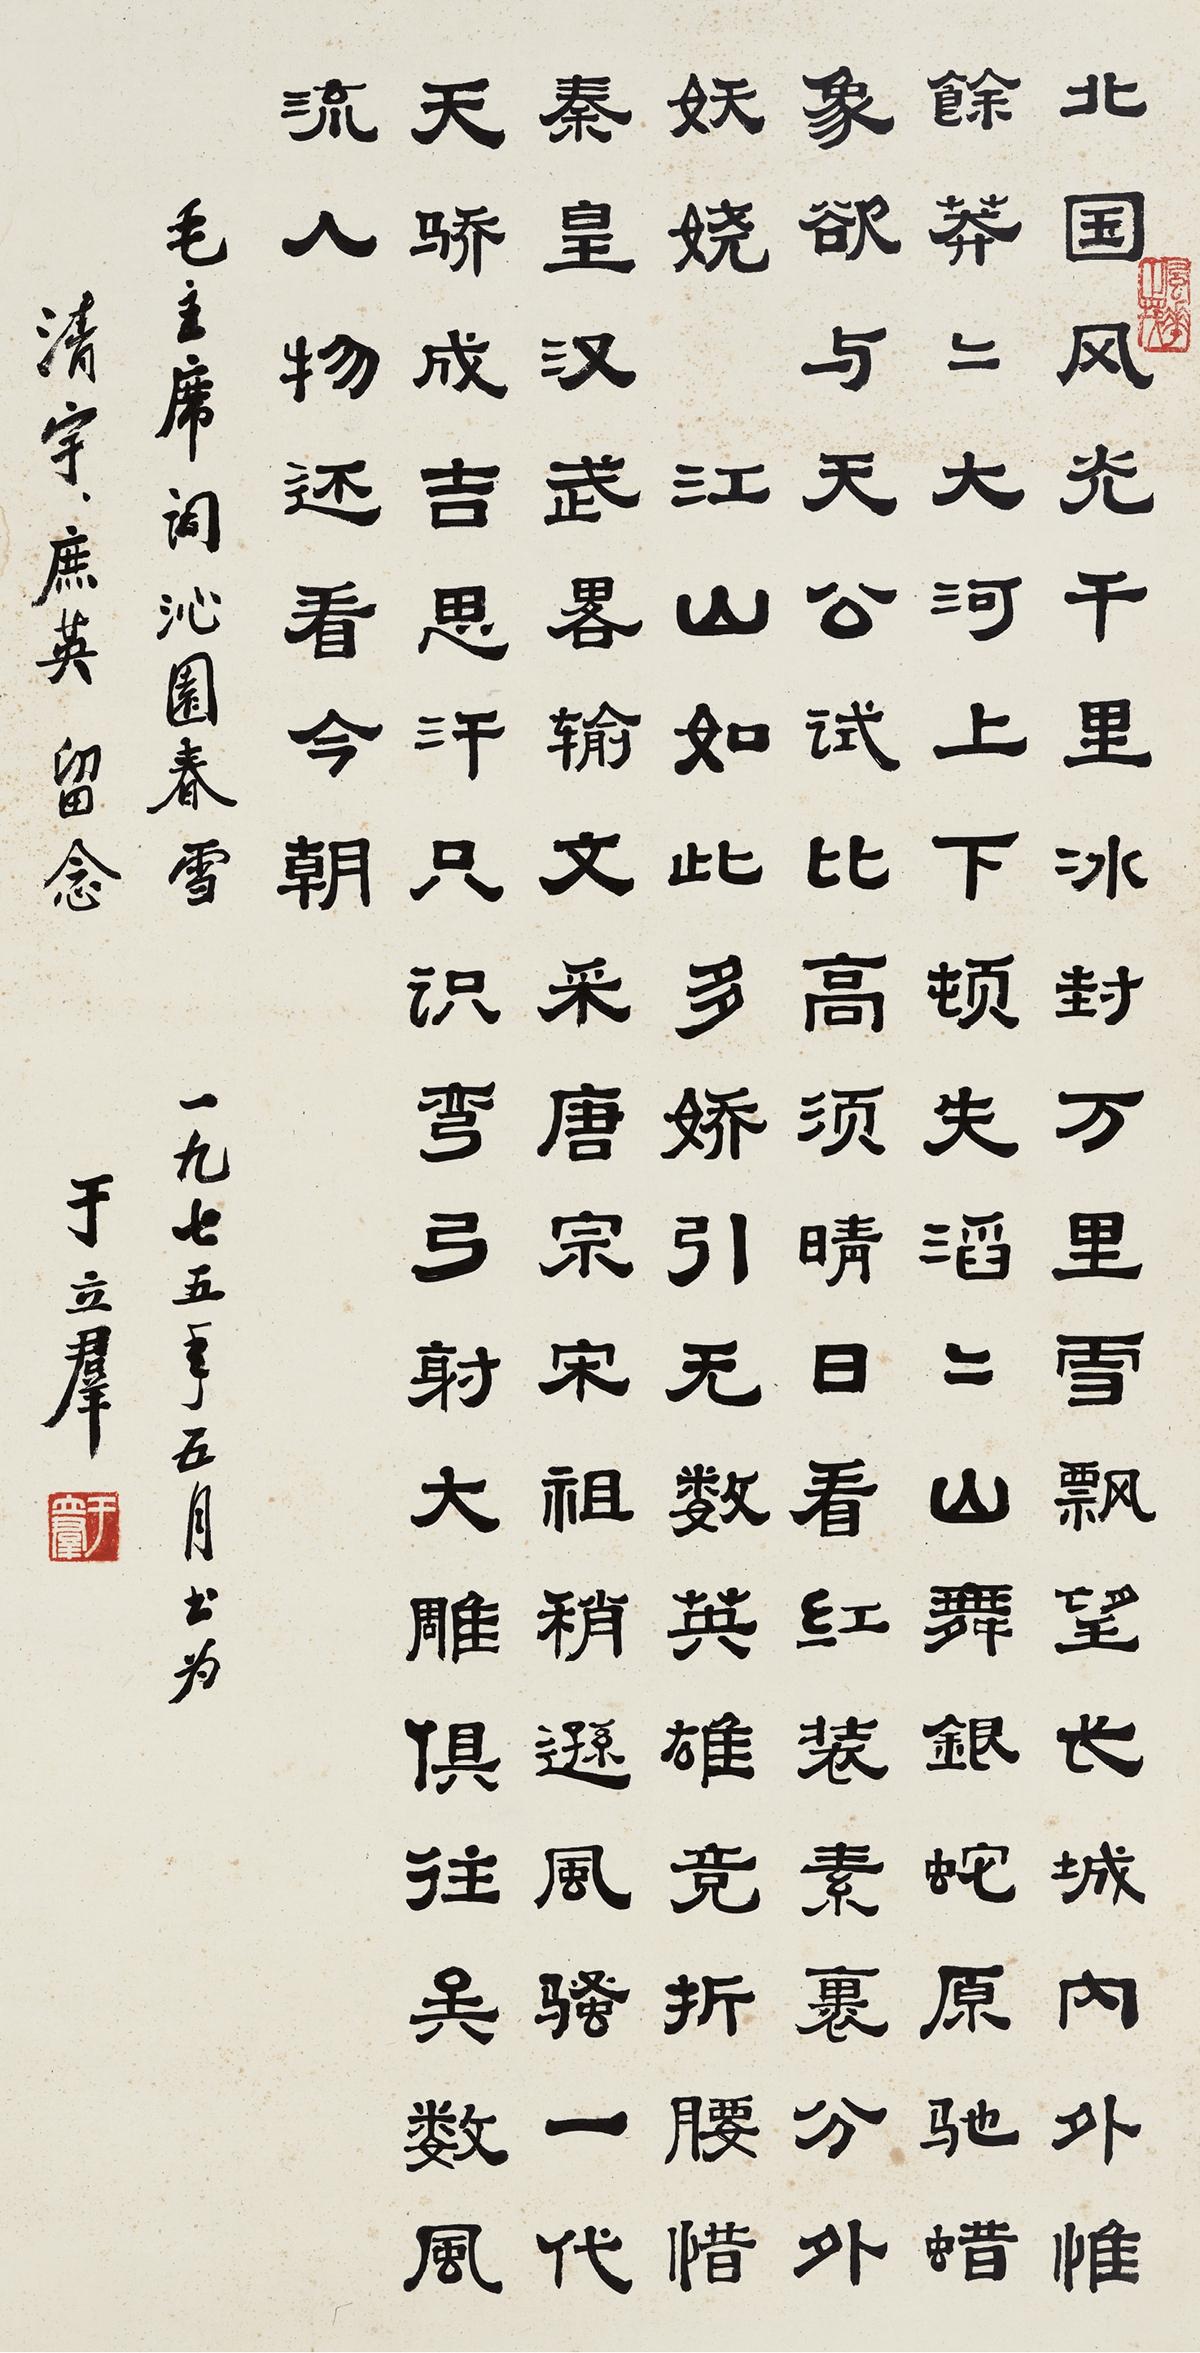 北国风光千里冰封万里雪飘望长城内外惟
餘莽二大河上下顿失滔二山舞銀蛇原驰蜡
象欲与天公试比高须晴日看红装素裹分外
妖娆 江山如此多娇引无数英雄竞折腰惜
秦皇汉武畧输文采唐宗宋祖稍遜風骚一代
天骄成吉思汗只识弯弓射大雕俱往矣数風
流人物还看今朝
毛主席词沁園春雪 一九七五年五月书为
清宇、庶英 留念 于立羣
于立羣